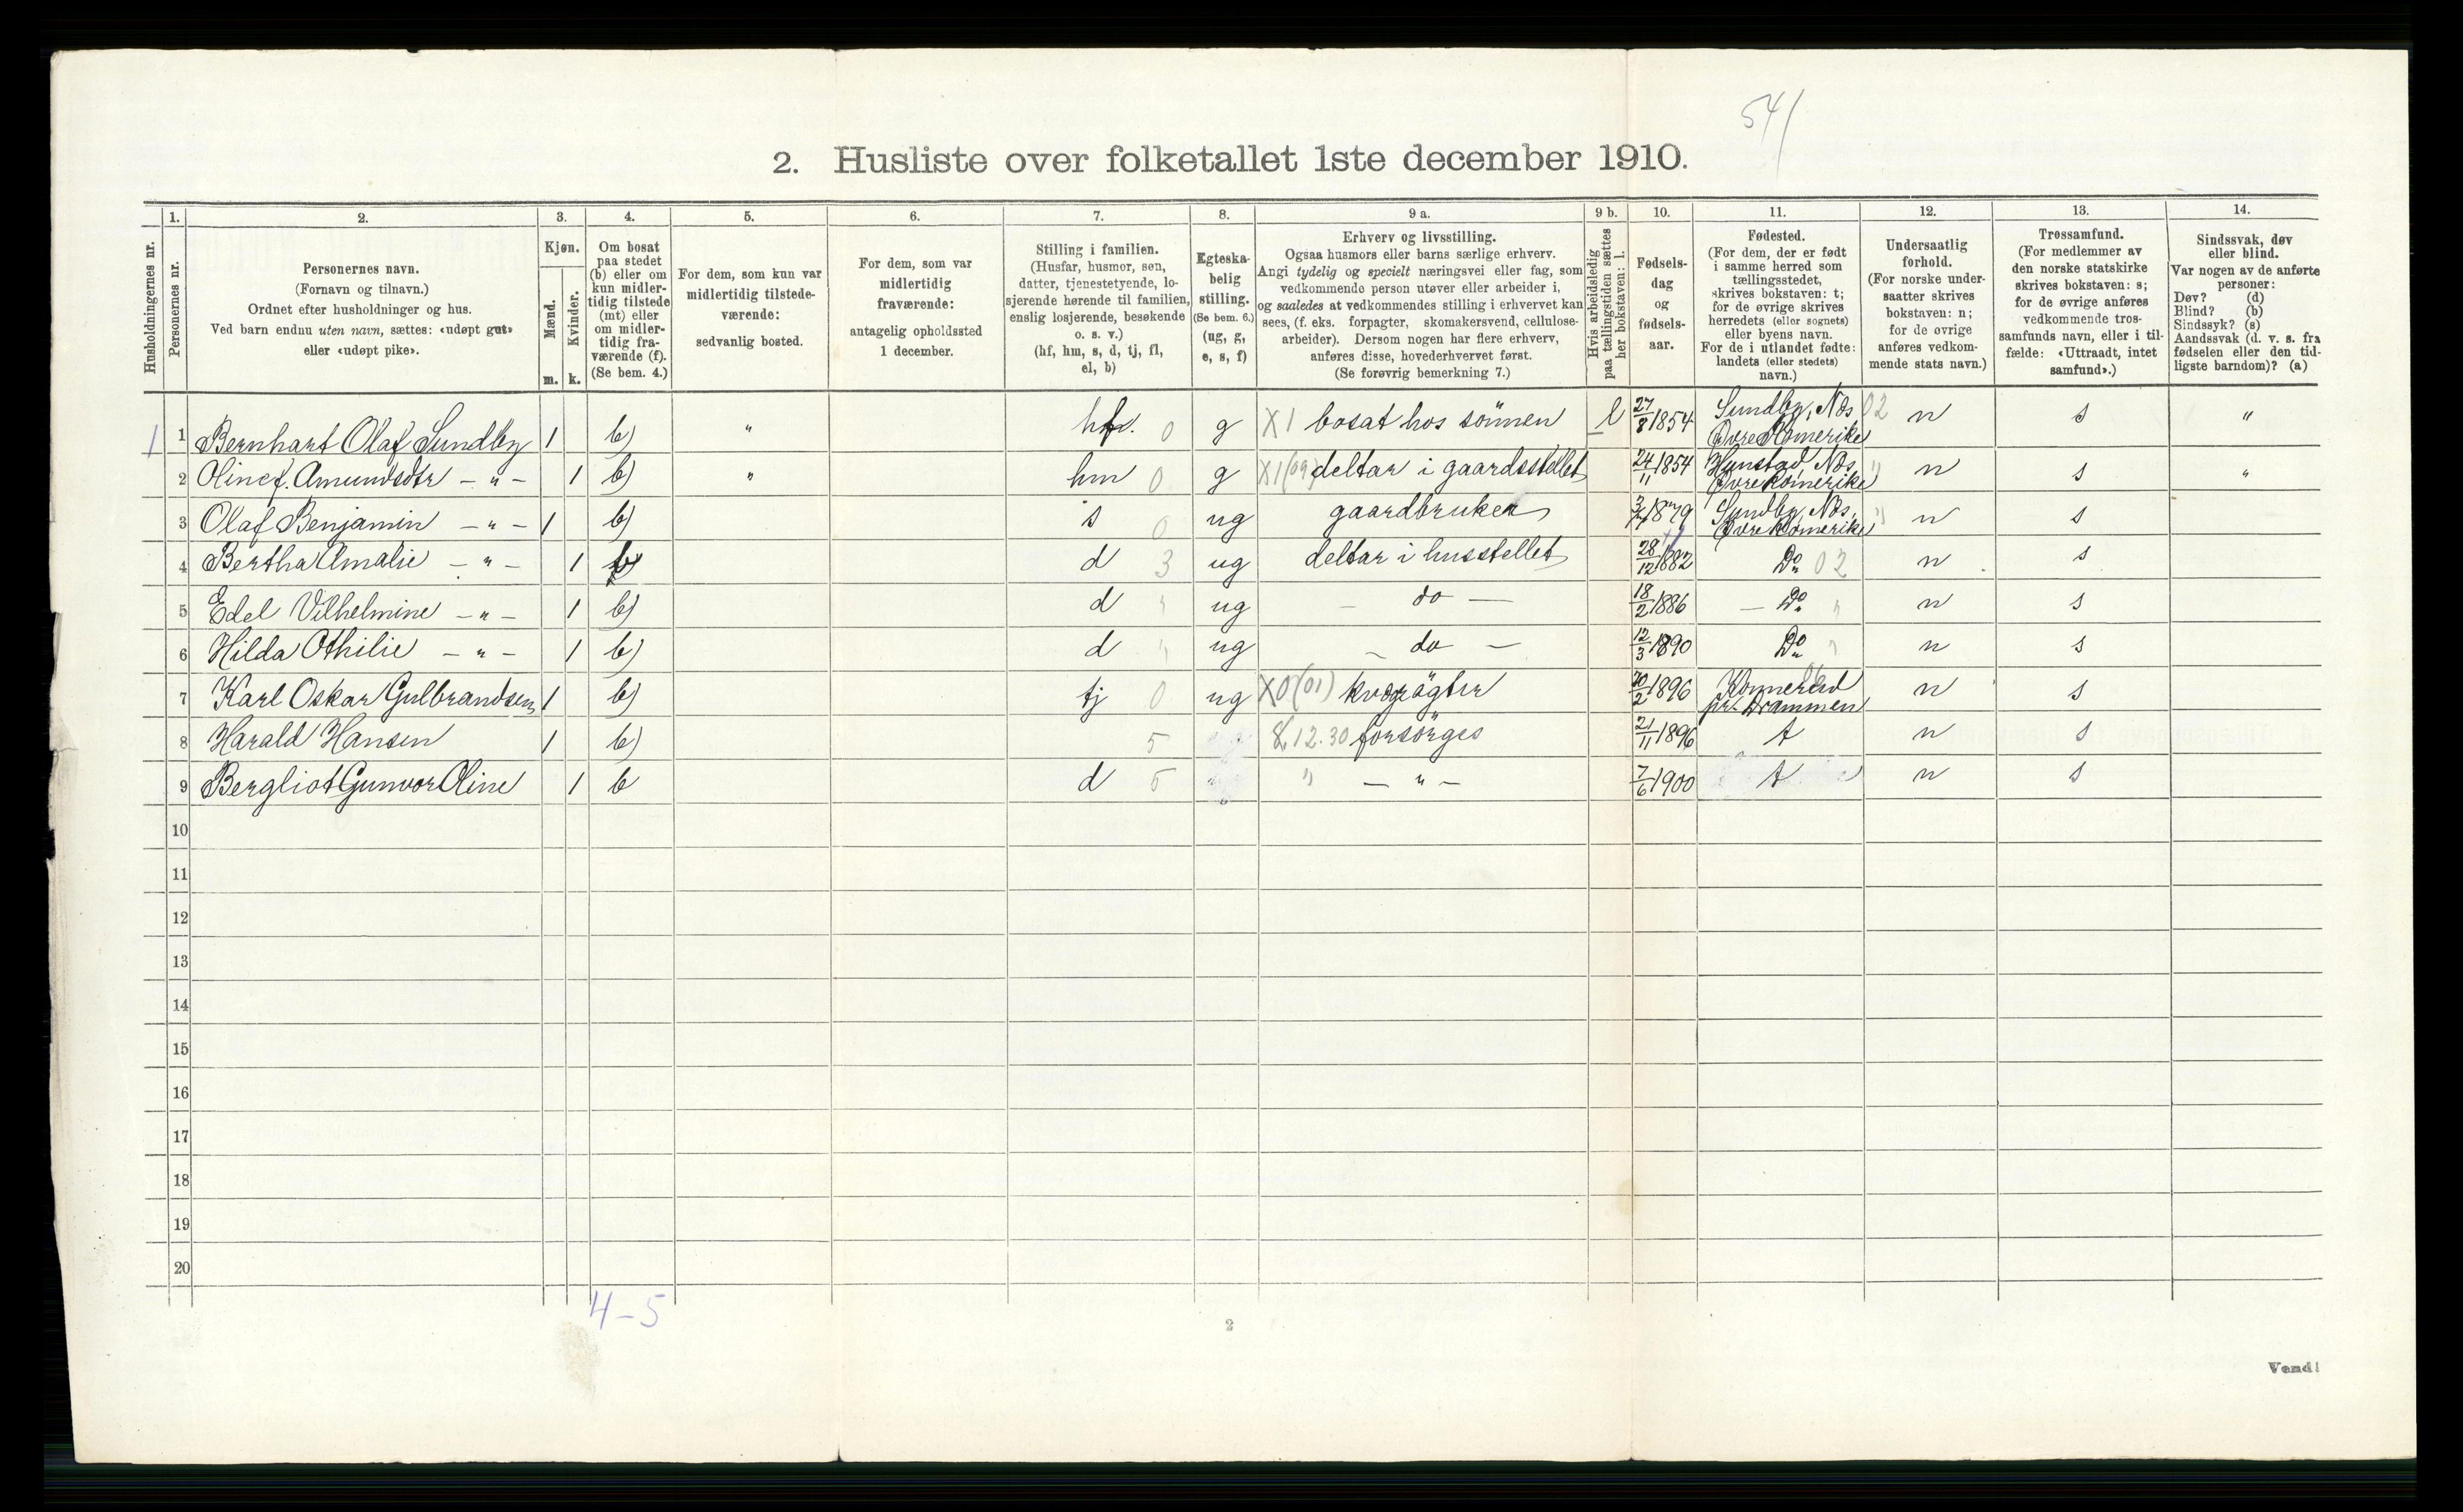 541
2. Husliste over folketallet 1ste december 1910.
Husholdningernes nr.
1.
Personernes nr.
2.
Personernes navn.
(Fornavn og tilnavn.)
Ordnet efter husholdninger og hus.
Ved barn endnu uten navn, sættes: «udøpt gut»
eller «udøpt pike».
3.
Kjøn.
Mænd.
Kvinder.
m. k.
4.
Om bosat
paa stedet
(b) eller om
kun midler-
tidig tilstede
(mt) eller
om midler-
tidig fra-
værende (f).
(Se bem. 4.)
5.
For dem, som kun var
midlertidig tilstede-
værende:
sedvanlig bosted.
6.
For dem, som var
midlertidig
fraværende:
antagelig opholdssted
1 december.
7.
Stilling i familien.
(Husfar, husmor, søn,
datter, tjenestetyende, lo-
sjerende hørende til familien,
enslig losjerende, besøkende
o. s. v.)
(hf, hm, s, d, tj, fl,
el, b)
8.
Egteska-
belig
stilling.
(Se bem. 6.)
(ug, g,
e, s, f)
9 a.
Erhverv og livsstilling.
Ogsaa husmors eller barns særlige erhverv.
Angi tydelig og specielt næringsvei eller fag, som
vedkommende person utøver eller arbeider i,
og saaledes at vedkommendes stilling i erhvervet kan
sees, (f. eks. forpagter, skomakersvend, cellulose-
arbeider). Dersom nogen har flere erhverv,
anføres disse, hovederhvervet først.
(Se forøvrig bemerkning 7.)
9 b.
Hvis arbeidsledig
paa tællingstiden sættes
her bokstaven: l.
10.
Fødsels-
dag
og
fødsels-
aar.
11.
Fødested.
(For dem, der er født
i samme herred som
tællingsstedet,
skrives bokstaven: t;
for de øvrige skrives
herredets (eller sognets)
eller byens navn.
For de i utlandet fødte:
landets (eller stedets)
navn.)
12.
Undersaatlig
forhold.
(For norske under-
saatter skrives
bokstaven: n;
for de øvrige
anføres vedkom-
mende stats navn.)
13.
Trossamfund.
(For medlemmer av
den norske statskirke
skrives bokstaven: s;
for de øvrige anføres
vedkommende tros-
samfunds navn, eller i til-
fælde: «Uttraadt, intet
samfund».)
14.
Sindssvak, døv
eller blind.
Var nogen av de anførte
personer:
Døv? (d)
Blind? (b)
Sindssyk? (s)
Aandssvak (d. v. s. fra
fødselen eller den tid-
ligste barndom)? (a)
1 1 Bernhart Olaf Sundby 1 b) " hf. 0 g X1 bosat hos sönnen l 27/8 1854 Sundby, Næs 02 Øvre Romerike n s "
2 Oline f. Amundsdtr - " - 1 b) " hm 0 g X1(09) deltar i gaardsstellet 24/11 1854 Hunstad, Næs, Øvre Romerike " n s "
3 Olaf Benjamin - " - 1 b) s 0 ug gaardbruker 1879 Sundby, Næs, Øvre Romerike " n s
4 Bertha Amalie - " - 1 b) d 3 ug deltar i husstellet 28/12 1882 Do 02 n s
5 Edel Vilhelmine - " - 1 b) d " ug - do - 18/2 1886 - Do " n s
6 Hilda Othilie - " - 1 b) d " ug - do - 12/3 1890 Do " n s
7 Karl Oskar Gulbrandsen 1 b) tj 0 ug X0(01) kvægrögter 20/2 1896 Konnerud pr. Drammen n s
8 Harald Hansen 1 b) 5 8.12.30 forsörges 21/11 1896 t n s
9 Bergliot Gunvor Oline 1 b d 5 " - " - 7/6 1900 t n s
10
11
12
13
14
15
16
17
18
19
20
4-5
2
Vend!